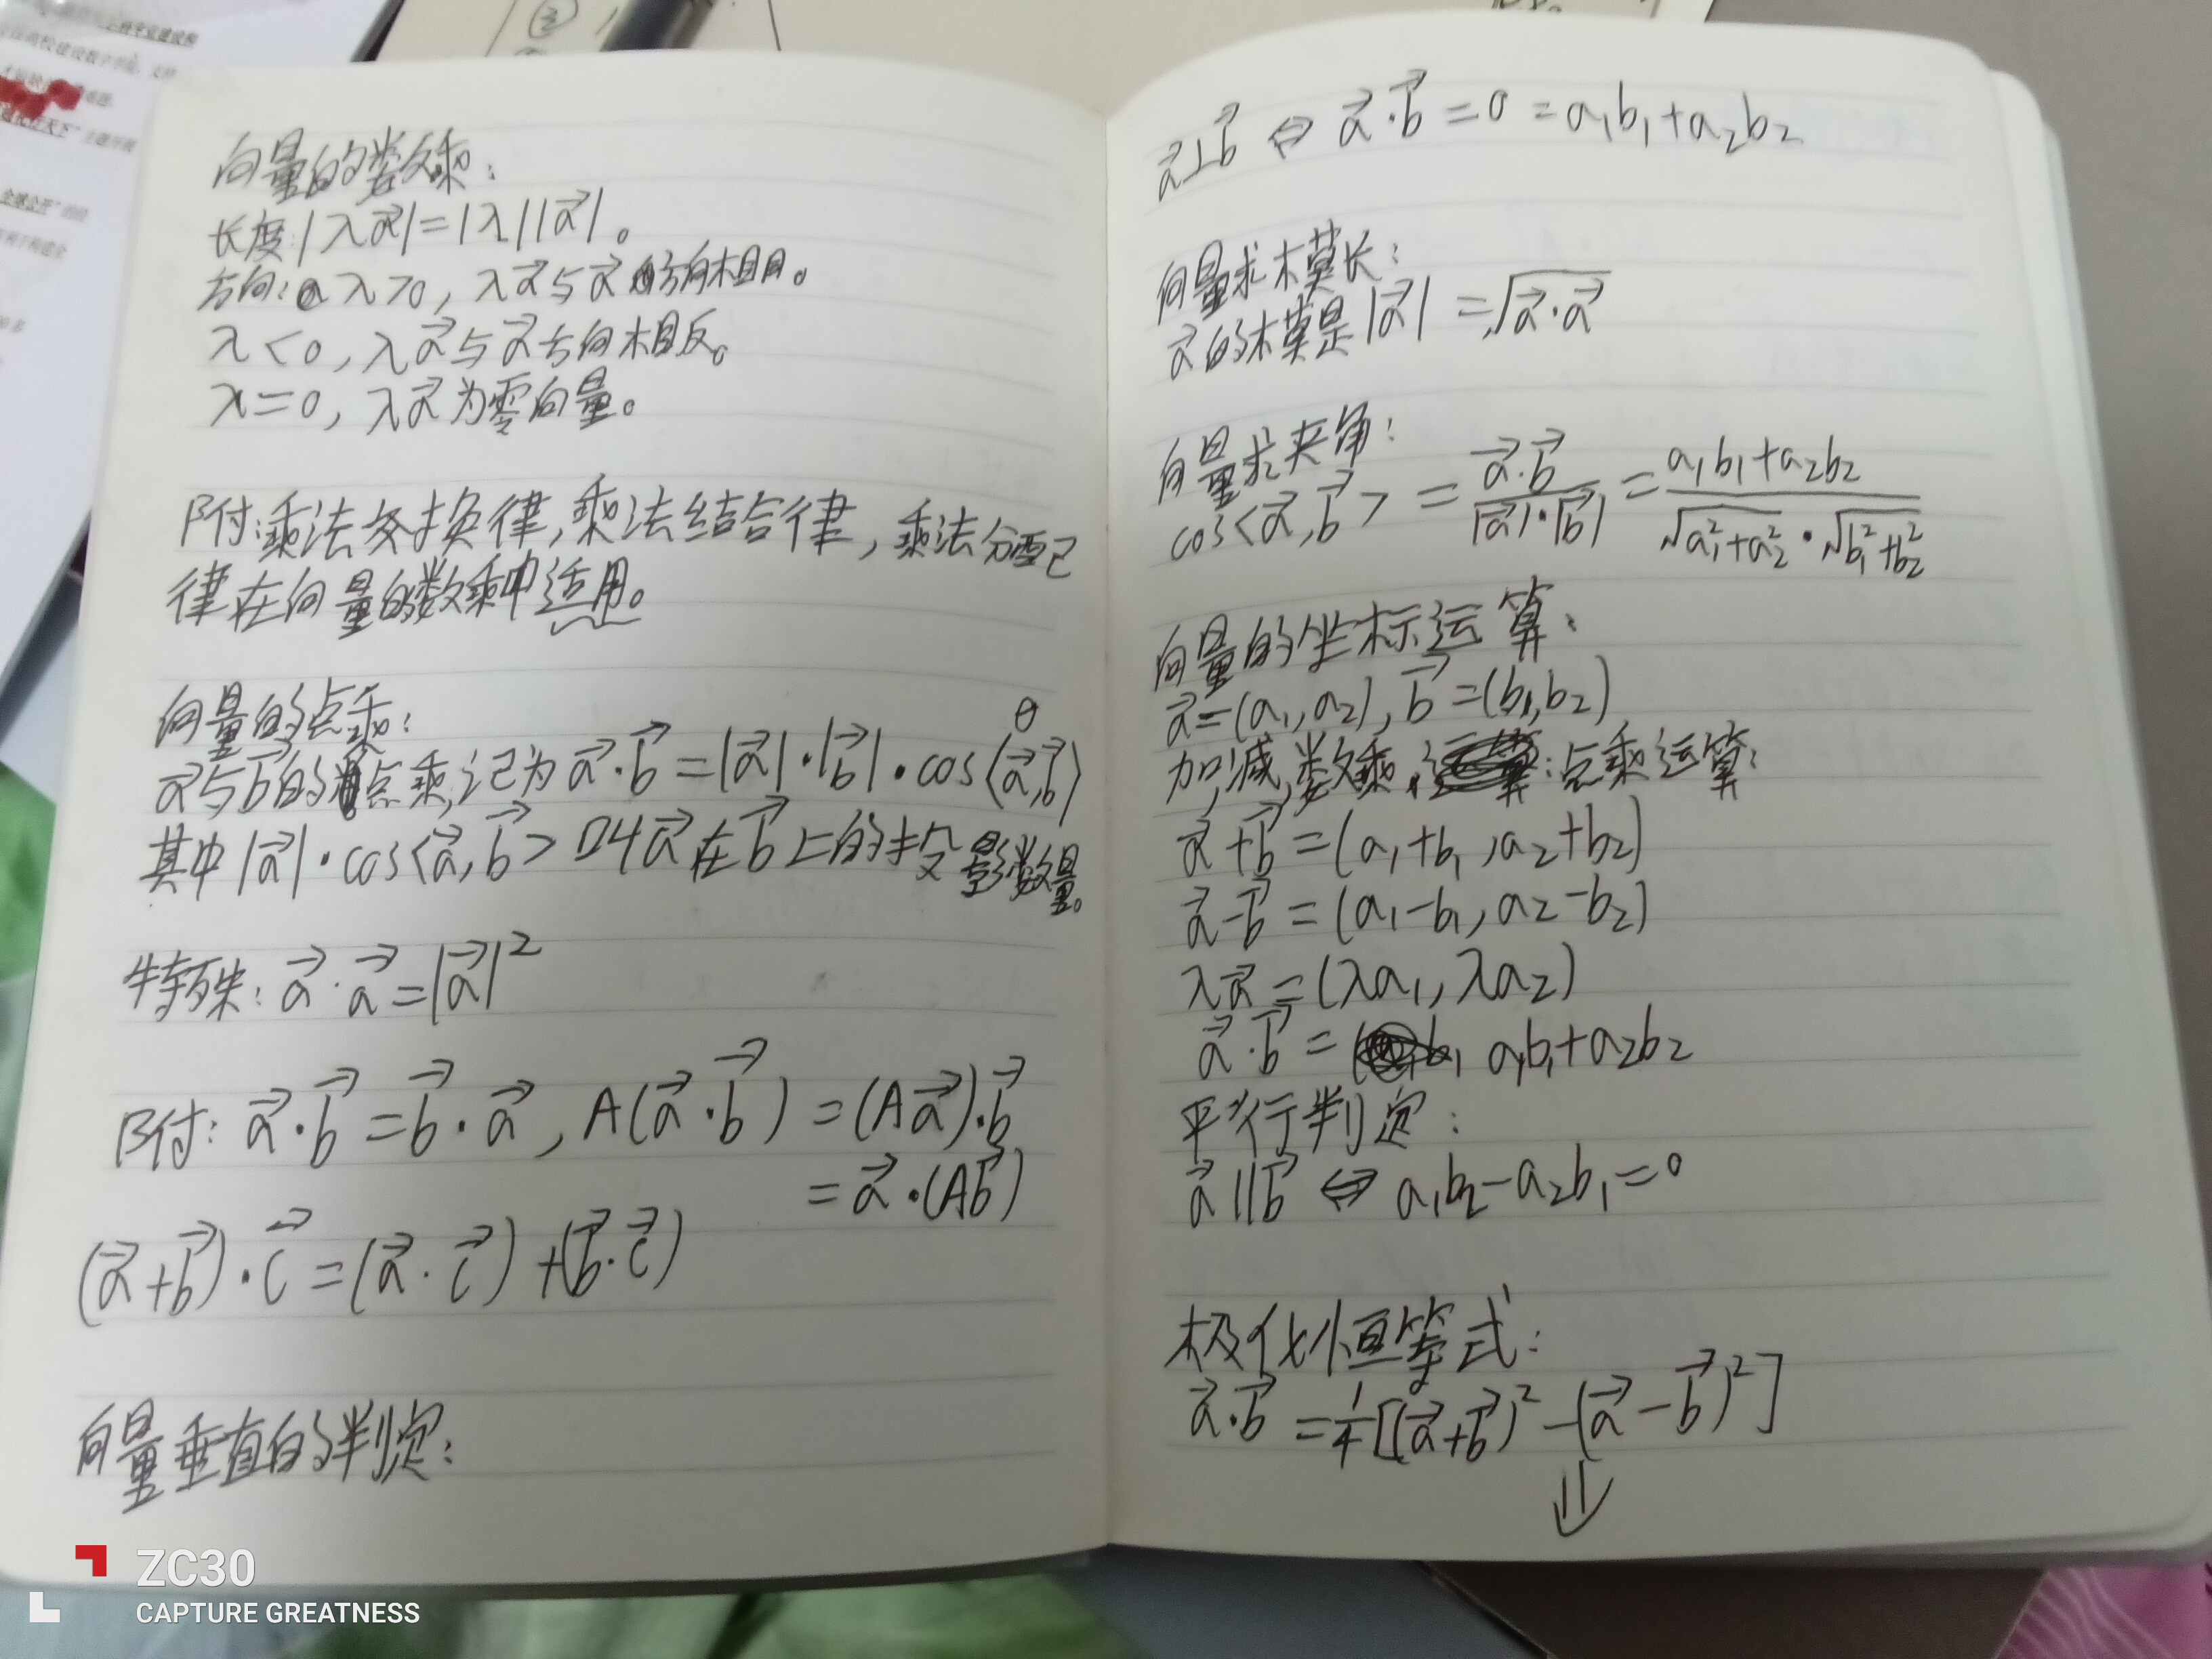 向量的数乘:
长度:|λa⃗|=|λ||a⃗|。
方向:λ>0, λa⃗与a⃗方向相同。
λ<0, λa⃗与a⃗方向相反。
λ=0, λa⃗为零向量。
附:乘法交换律,乘法结合律,乘法分配
律在向量的数乘中适用。
向量的点乘:
θ
a⃗与b⃗的点乘,记为a⃗·b⃗=|a⃗|·|b⃗|·cos⟨a⃗,b⃗⟩
其中|a⃗|·cos<a⃗,b⃗>叫a⃗在b⃗上的投影数量。
特殊:a⃗·a⃗=|a⃗|²
附:a⃗·b⃗=b⃗·a⃗, A(a⃗·b⃗)=(Aa⃗)·b⃗
=a⃗·(Ab⃗)
(a⃗+b⃗)·c⃗=(a⃗·c⃗)+(b⃗·c⃗)
向量垂直的判定:
a⃗⊥b⃗⇔a⃗·b⃗=0=a₁b₁+a₂b₂
向量求模长:
a⃗的模是|a⃗|=√(a⃗·a⃗)
向量求夹角:
cos<a⃗,b⃗>=(a⃗·b⃗)/(|a⃗|·|b⃗|)=(a₁b₁+a₂b₂)/(√(a₁²+a₂²)·√(b₁²+b₂²))
向量的坐标运算:
a⃗=(a₁,a₂),b⃗=(b₁,b₂)
加,减,数乘,点乘运算:
a⃗+b⃗=(a₁+b₁,a₂+b₂)
a⃗-b⃗=(a₁-b₁,a₂-b₂)
λa⃗=(λa₁,λa₂)
a⃗·b⃗=a₁b₁+a₂b₂
平行判定:
a⃗∥b⃗⇔a₁b₂-a₂b₁=0
极化恒等式:
a⃗·b⃗=¼[(a⃗+b⃗)²-(a⃗-b⃗)²]
⇓
ZC30
CAPTURE GREATNESS